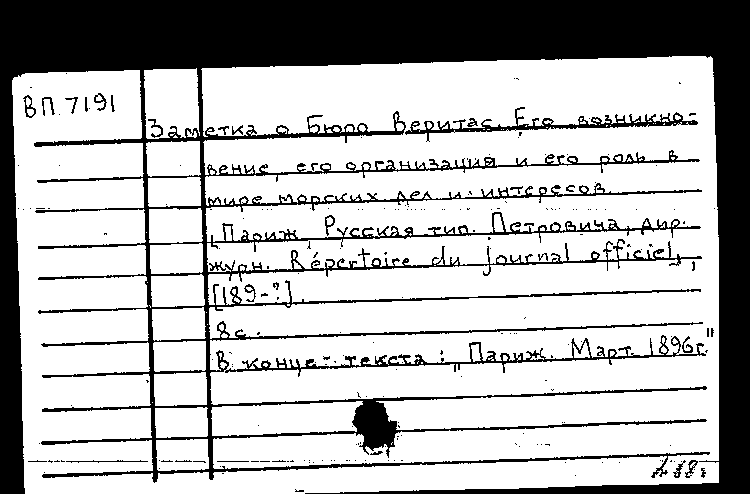 ВП 7191
Заметка о Бюро Веритас. Его возникно-
вение, его организация и его роль в
мире морских дел и интересов
„Париж, Русская тип. Петровича, дир.
журн. Répertoire du journal officiel„,
[189-?].
8с.
В конце текста: „Париж. Март 1896г."